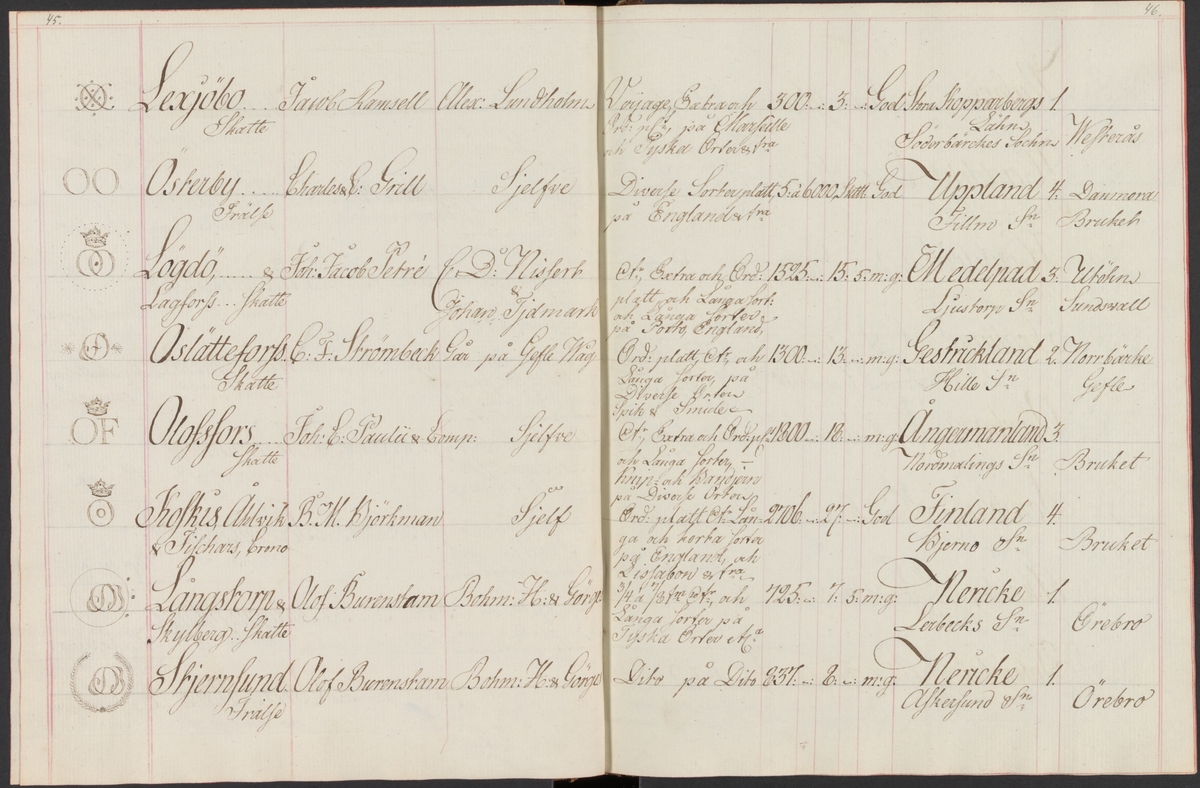 45.
46.
Lexjöbo.... Jacob Ramsell Alex: Lundholm Voyage, Extra och 300: „: 3: „: God Stora Kopparbergs 1.
Skatte Ord: på Marseille Lähn Westerås
och Tyska Orter & tra Söderbärckes Sochn
OO Österby.... Charles & C: Grill Sjelfve Diverse Sorter platt, 5: à 6000, Skatt God Uppland 4. Danmora
Frälse på England & tra Fillm Sn Bruket
Lögdö,.... & Joh: Jacob Petré C: D: Nissert Ct, Extra och Ord: 1525: „: 15: 5: m: g: Medelpad 3.
Lagforss... Skatte & Johan Tjdmark platt, och Långa Sort: Ljustorp Sn Sundsvall
och Långa Sorter
på Porto, England,
Oslätteforss C: F: Strömbeck Går på Gefle Wåg Ord: platt, Ct, och 1300: „: 13: „: m: g: Gestrickland 2. Norrbärke
Skatte Långa Sorter, på Hille Sn Gefle
Diverse Orter
Spik & Smide
OF Olofsfors.... Joh: C: Pauli & Comp: Sjelfve Ct, Extra och Ord: 1800: „: 18: „: m: g: Ångermanland 3.
Skatte och Långa Sorter, Nordmalings Sn Bruket
Knip: och Bandjern
på Diverse Orter
Koskis, Åhlvik B. M. Björkman Sjelf Ord: platt Ct: Lån- 2706: „: 27: „: God Finland 4.
& Tischars, Creno ga och korta Sorter Bjerno Sn Bruket
på England, och
Lissabon & tra
Långstorp & Olof Burenstam Bohm: H: & Görges 3/4 à 7/8 och 725: „: 7: 5: m: g: Nericke 1.
Skylberg.. Skatte Långa Sorter på Lerbecks Sn Örebro
Tyska Orter etc
Skjernsund Olof Burenstam Bohm: H: & Görges Dito på Dito 837: „: 8: „: m: g: Nericke 1.
Frälse Askersund Sn Örebro